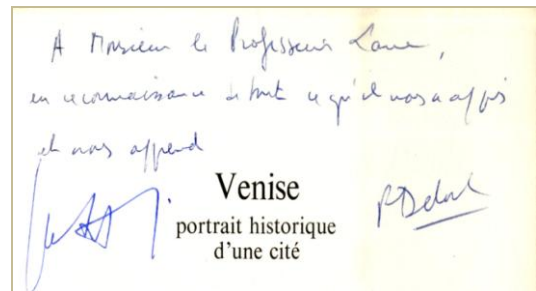 A Monsieur le Professeur Lane,
en reconnaissance de tout ce qu'il nous a appris
et nous apprend
Venise
portrait historique
d'une cité